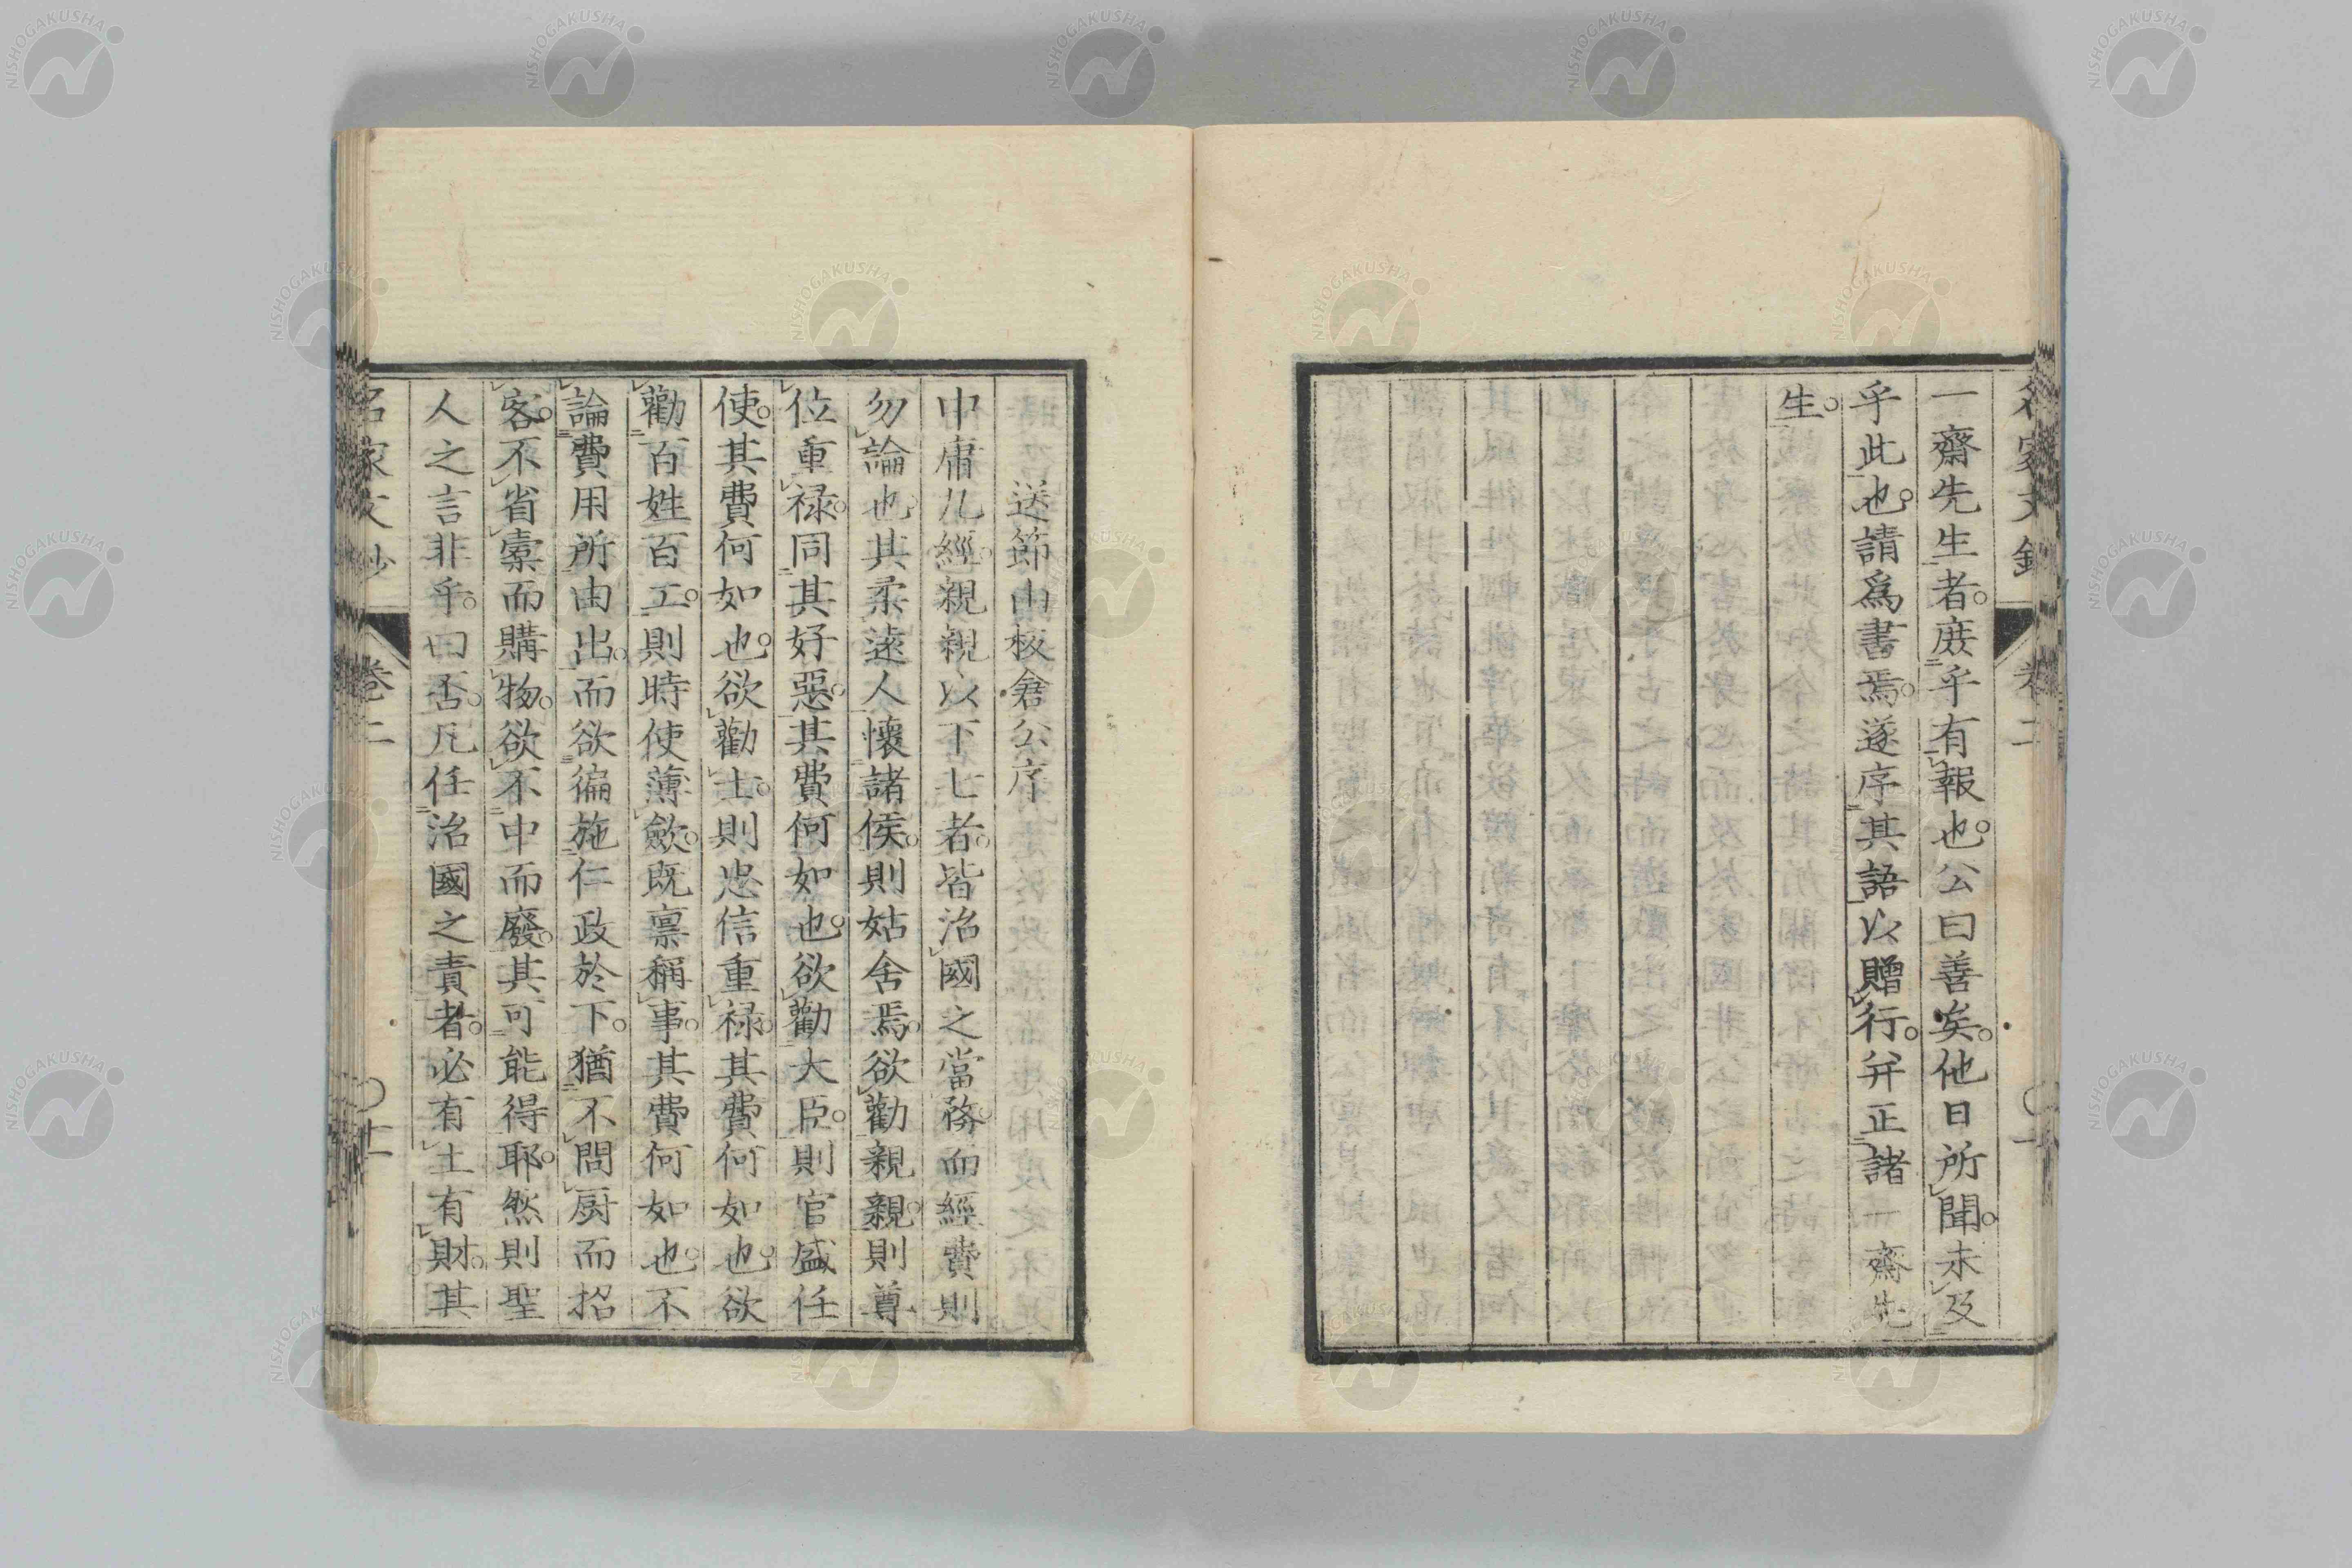 一齋先生者。庶乎有報也。公曰善矣。他日所聞。未及
乎此也。請爲書焉。遂序其語以贈行。幷正諸一齋先
生。
送節由板倉公序
中庸九經。親親以下七者。皆治國之當務。而經費則
勿論也。其柔遠人懷諸侯。則姑舍焉。欲勸親親。則尊
位重祿。同其好惡。其費何如也。欲勸大臣。則官盛任
使。其費何如也。欲勸士。則忠信重祿。其費何如也。欲
勸百姓百工。則時使薄斂。既稟稱事。其費何如也。不
論費用所由出。而欲徧施仁政於下。猶不問厨而招
客。不省槖而購物。欲不中而廢。其可能得耶。然則聖
人之言非乎。曰否。凡任治國之責者。必有土有財。其
名家文鈔
卷二
NISHOGAKUSHA